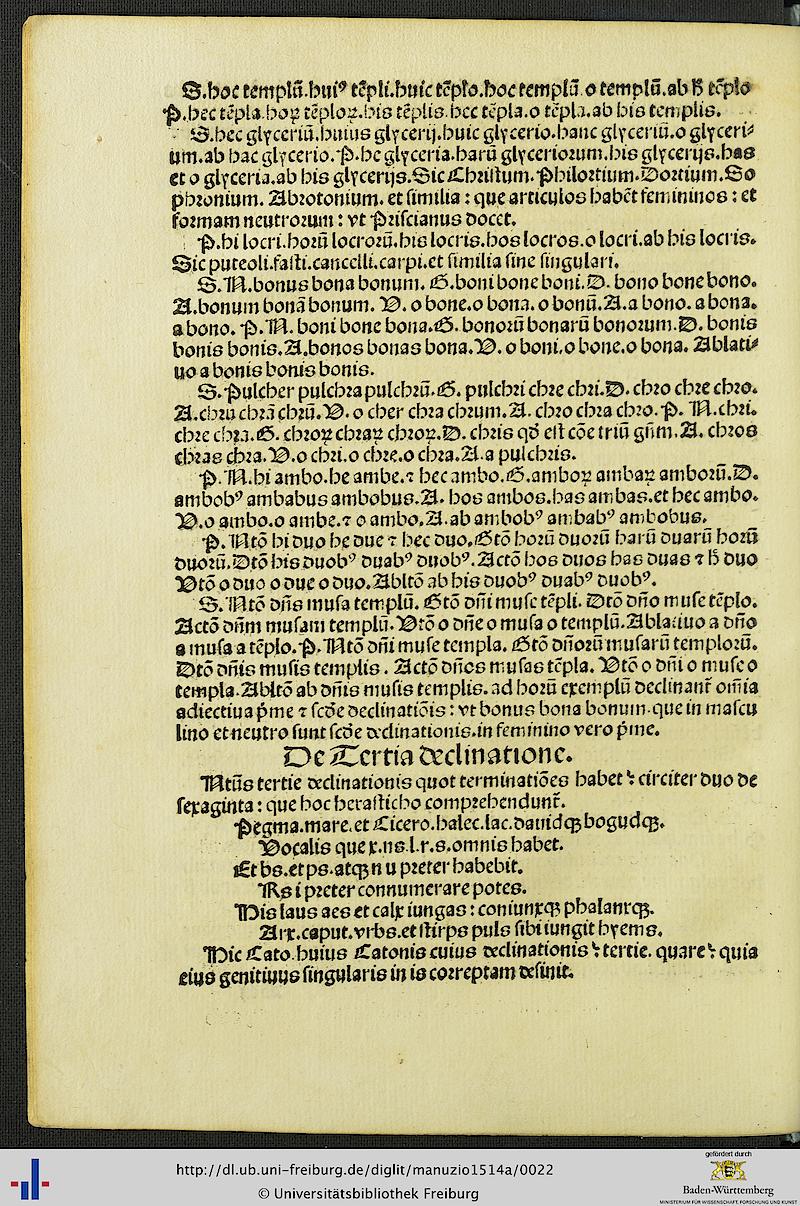 S.hoc templū.huiꝰ tēpli.huic tēplo.hoc templū.o templū.ab h̄ tēplo
P.hec tēpla.hoꝝ tēploꝝ.his tēplis.hec tēpla.o tēpla.ab his templis.
S.hec glyceriū.huius glycerij.huic glycerio.hanc glyceriū.o glyceri⸗
um.ab hac glycerio.P.he glyceria.harū glyceriorum.his glycerijs.has
et o glyceria.ab his glycerijs.Sic Christum.Philortium.Dortium.So
phronium. Abrotonium. et similia : que articulos habēt femininos : et
formam neutrorum : vt Priscianus docet.
P.hi locri.horū locrorū.his locris.hos locros.o locri.ab his locris.
Sic puteoli.fasti.cancelli.carpi.et similia sine singulari.
S.N.bonus bona bonum. G.boni bone boni.D. bono bone bono.
A.bonum bonā bonum. V. o bone.o bona. o bonū.A.a bono. a bona.
a bono. P.N. boni bone bona.G. bonorū bonarū bonorum.D. bonis
bonis bonis.A.bonos bonas bona.V. o boni.o bone.o bona. Ablati⸗
uo a bonis bonis bonis.
S.Pulcher pulchra pulchrū.G. pulchri chre chri.D. chro chre chro.
A.chrū chrā chrū.V. o cher chra chrum.A. chro chra chro.P. N.chri.
chre chra.G. chroꝝ chraꝝ chroꝝ.D. chris qd̄ est cōe triū gn̄m.A. chros
chras chra.V.o chri.o chre.o chra.A.a pulchris.
P.N.hi ambo.he ambe.⁊ hec ambo.G.amboꝝ ambaꝝ amborū.D.
ambobꝰ ambabus ambobus.A. hos ambos.has ambas.et hec ambo.
V.o ambo.o ambe.⁊ o ambo.A.ab ambobꝰ ambabꝰ ambobus.
P.Ntō hi duo he due ⁊ hec duo.Gtō horū duorū harū duarū horū
duorū.Dtō his duobꝰ duabꝰ duobꝰ.Actō hos duos has duas ⁊ h̄ duo
Vtō o duo o due o duo.Abltō ab his duobꝰ duabꝰ duobꝰ.
S.Ntō dn̄s musa templū. Gtō dn̄i muse tēpli. Dtō dn̄o muse tēplo.
Actō dn̄m musam templū.Vtō o dn̄e o musa o templū.Ablatiuo a dn̄o
a musa a tēplo.P.Ntō dn̄i muse templa. Gtō dn̄orū musarū templorū.
Dtō dn̄is musis templis. Actō dn̄os musas tēpla. Vtō o dn̄i o muse o
templa.Abltō ab dn̄is musis templis. ad horū exemplū declinant᷑ om̄ia
adiectiua p̄me ⁊ scd̄e declinatiōis : vt bonus bona bonum.que in mascu
lino et neutro sunt scd̄e declinationis.in feminino vero p̄me.
De Tertia declinatione.
Ntūs tertie declinationis quot terminatiōes habet ? circiter duo de
sexaginta : que hoc hexasticho comprehendunt᷑.
Pegma.mare.et Cicero.halec.lac.dauidqꝫ bogudqꝫ.
Vocalis que x.ns.l.r.s.omnis habet.
Et bs.et ps.atqꝫ n u preter habebit.
Rs i preter connumerare potes.
His laus aes et calx iungas : coniunxqꝫ phalanxqꝫ.
Arx.caput.vrbs.et stirps puls sibi iungit hyems.
Hic Cato.huius Catonis cuius declinationis ? tertie. quare ? quia
eius genitiuus singularis in is correptam desinit.
http://dl.ub.uni-freiburg.de/diglit/manuzio1514a/0022
© Universitätsbibliothek Freiburg
gefördert durch
Baden-Württemberg
MINISTERIUM FÜR WISSENSCHAFT, FORSCHUNG UND KUNST